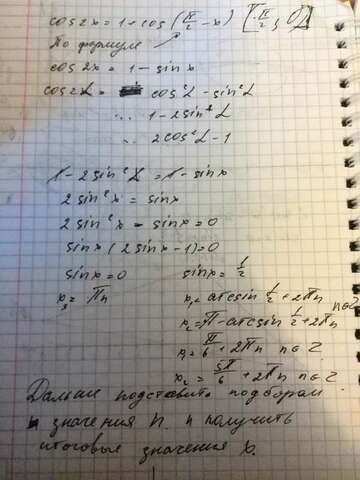 cos2x = 1 + cos(π/2 - x) [-π/2; 0]
По формуле
cos 2x = 1 - sinx
cos2L = cos²L - sin²L
1 - 2sin²L
2cos²L - 1
1 - 2sin²x = 1 - sinx
2sin²x = sinx
2sin²x - sinx = 0
sinx(2sinx - 1) = 0
sinx = 0 sinx = 1/2
x₃ = πn x₁ = arcsin 1/2 + 2πn
x₂ = π - arcsin 1/2 + 2πn n∈Z
x₁ = π/6 + 2πn n∈Z
x₂ = 5π/6 + 2πn n∈Z
Дальше подставить подбором
значения n. и получить
итоговые значения x.